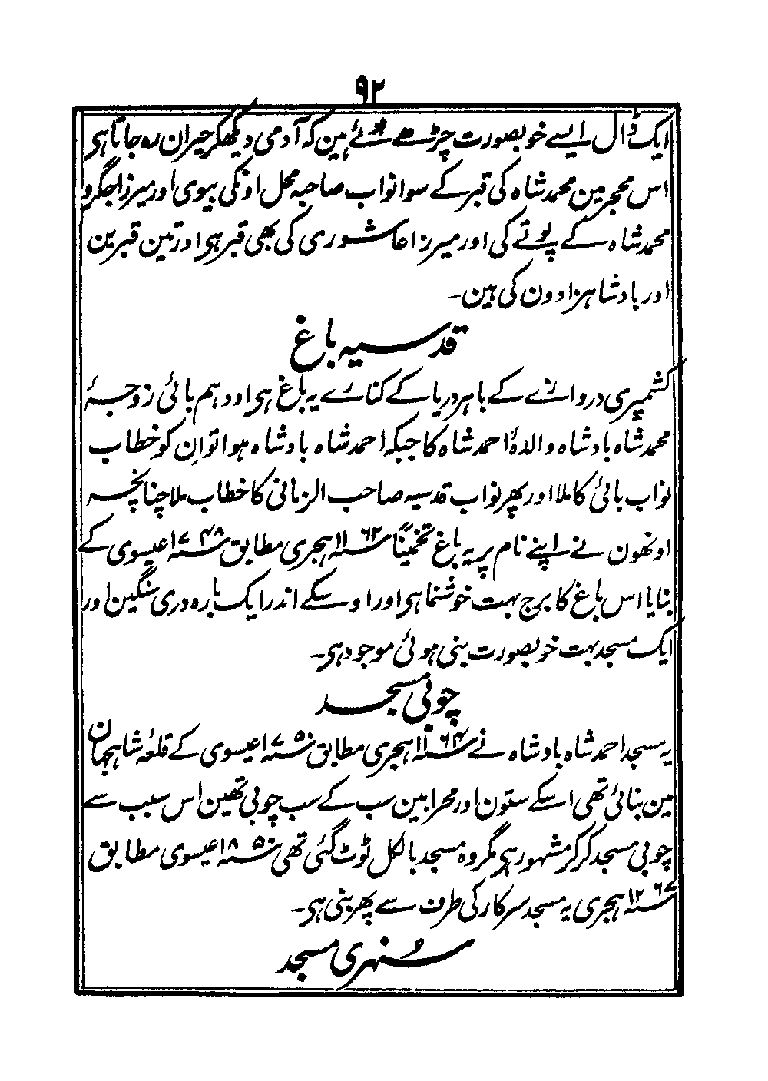 ۹۲
ایک ڈال ایسے خوبصورت چڑھے ہوئے ہین کہ آدمی دیکھکر حیران رہ جاتا ہی
اس محجر مین محمد شاہ کی قبر کے سوا نواب صاحبہ محل اونکی بیوی اور میرزا جگرو
محمد شاہ کے پوتے کی اور میرزا عاشوری کی بھی قبر ہی اور تین قبرین
اور بادشاہزادون کی ہین۔
قدسیہ باغ
کشمیری دروازے کے باہر دریا کے کنارے یہ باغ ہی اودہم بائی زوجۂ
محمد شاہ بادشاہ والدۂ احمد شاہ کا جبکہ احمد شاہ بادشاہ ہوا تو ان کو خطاب
نواب بائی کا ملا اور پھر نواب قدسیہ صاحب الزمانی کا خطاب ملا چنانچہ
اونھون نے اپنے نام پر یہ باغ تخمیناً سنہ ۱۱۶۲ ہجری مطابق سنہ ۱۷۴۸ عیسوی کے
بنایا اس باغ کا برج بہت خوشنما ہی اور اوسکے اندر ایک بارہ دری سنگین اور
ایک مسجد بہت خوبصورت بنی ہوئی موجود ہی۔
چوبی مسجد
یہ مسجد احمد شاہ بادشاہ نے سنہ ۱۱۶۴ ہجری مطابق سنہ ۱۷۵۰ عیسوی کے قلعۂ شاہجہان
مین بنائی تھی اسکے ستون اور محرابین سب کے سب چوبی تھین اس سبب سے
چوبی مسجد کر کر مشہور ہی مگر وہ مسجد بالکل ٹوٹ گئی تھی سنہ ۱۸۵۰ عیسوی مطابق
سنہ ۱۲۶۷ ہجری یہ مسجد سرکار کی طرف سے پھر بنی ہی۔
سنہری مسجد